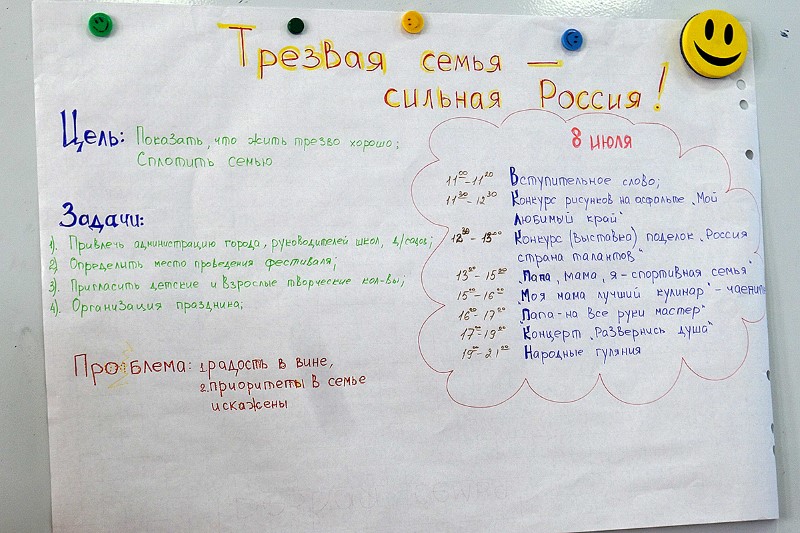 Трезвая семья —
сильная Россия!
Цель: Показать, что жить трезво хорошо;
Сплотить семью
Задачи:
1). Привлечь администрацию города, руководителей школ, д/садов;
2). Определить место проведения фестиваля;
3). Пригласить детские и взрослые творческие кол-вы;
4). Организация праздника;
Проблема: 1. радость в вине,
2. приоритеты в семье
искажены
8 июля
11⁰⁰-11²⁰ Вступительное слово;
11³⁰-12³⁰ Конкурс рисунков на асфальте „Мой
любимый край"
12³⁰-13⁰⁰ Конкурс (выставка) поделок „Россия
страна талантов"
13³⁰-15⁰⁰ „Папа, мама, я - спортивная семья"
15⁰⁰-16⁰⁰ „Моя мама лучший кулинар" - чаепитие
16⁰⁰-17⁰⁰ „Папа - на все руки мастер"
17⁰⁰-19⁰⁰ Концерт „Развернись душа"
19⁰⁰-21⁰⁰ Народные гуляния